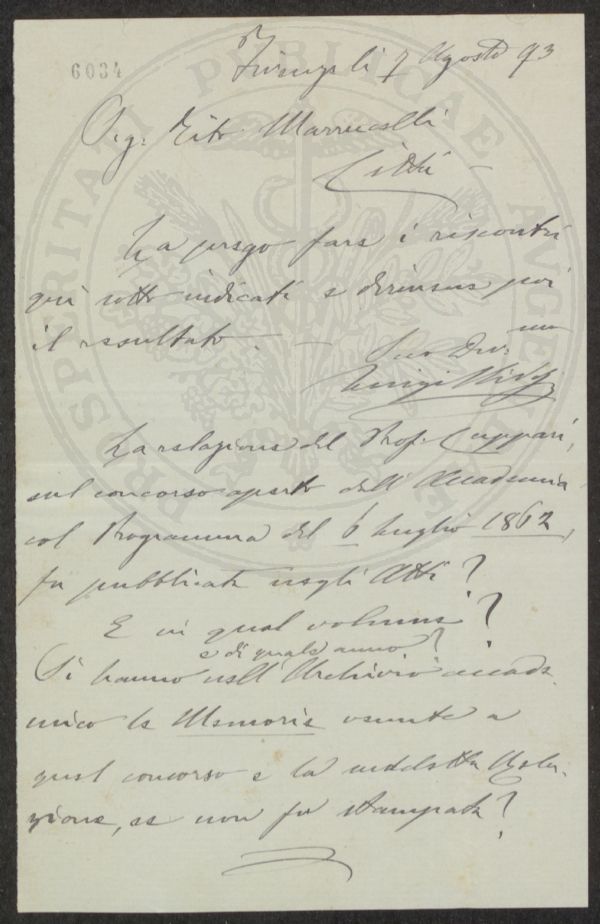 6034
Firenze li 7 Agosto 93
Sig. Tito Marrucelli
Città
La prego fare i riscontri
quì sotto indicati e dirmene poi
il resultato. —
Suo Dev.mo
Luigi
La relazione del Prof. Cuppari,
sul concorso aperto dall'Accademia
col Programma del 6 Luglio 1862,
fu pubblicata negli Atti?
E in qual volume?
e di quale anno?
Si hanno nell'Archivio accade-
mico le Memorie venute a
quel concorso e la suddetta Rela-
zione, se non fu stampata?
PROSPERITATI PUBLICAE AUGENDAE